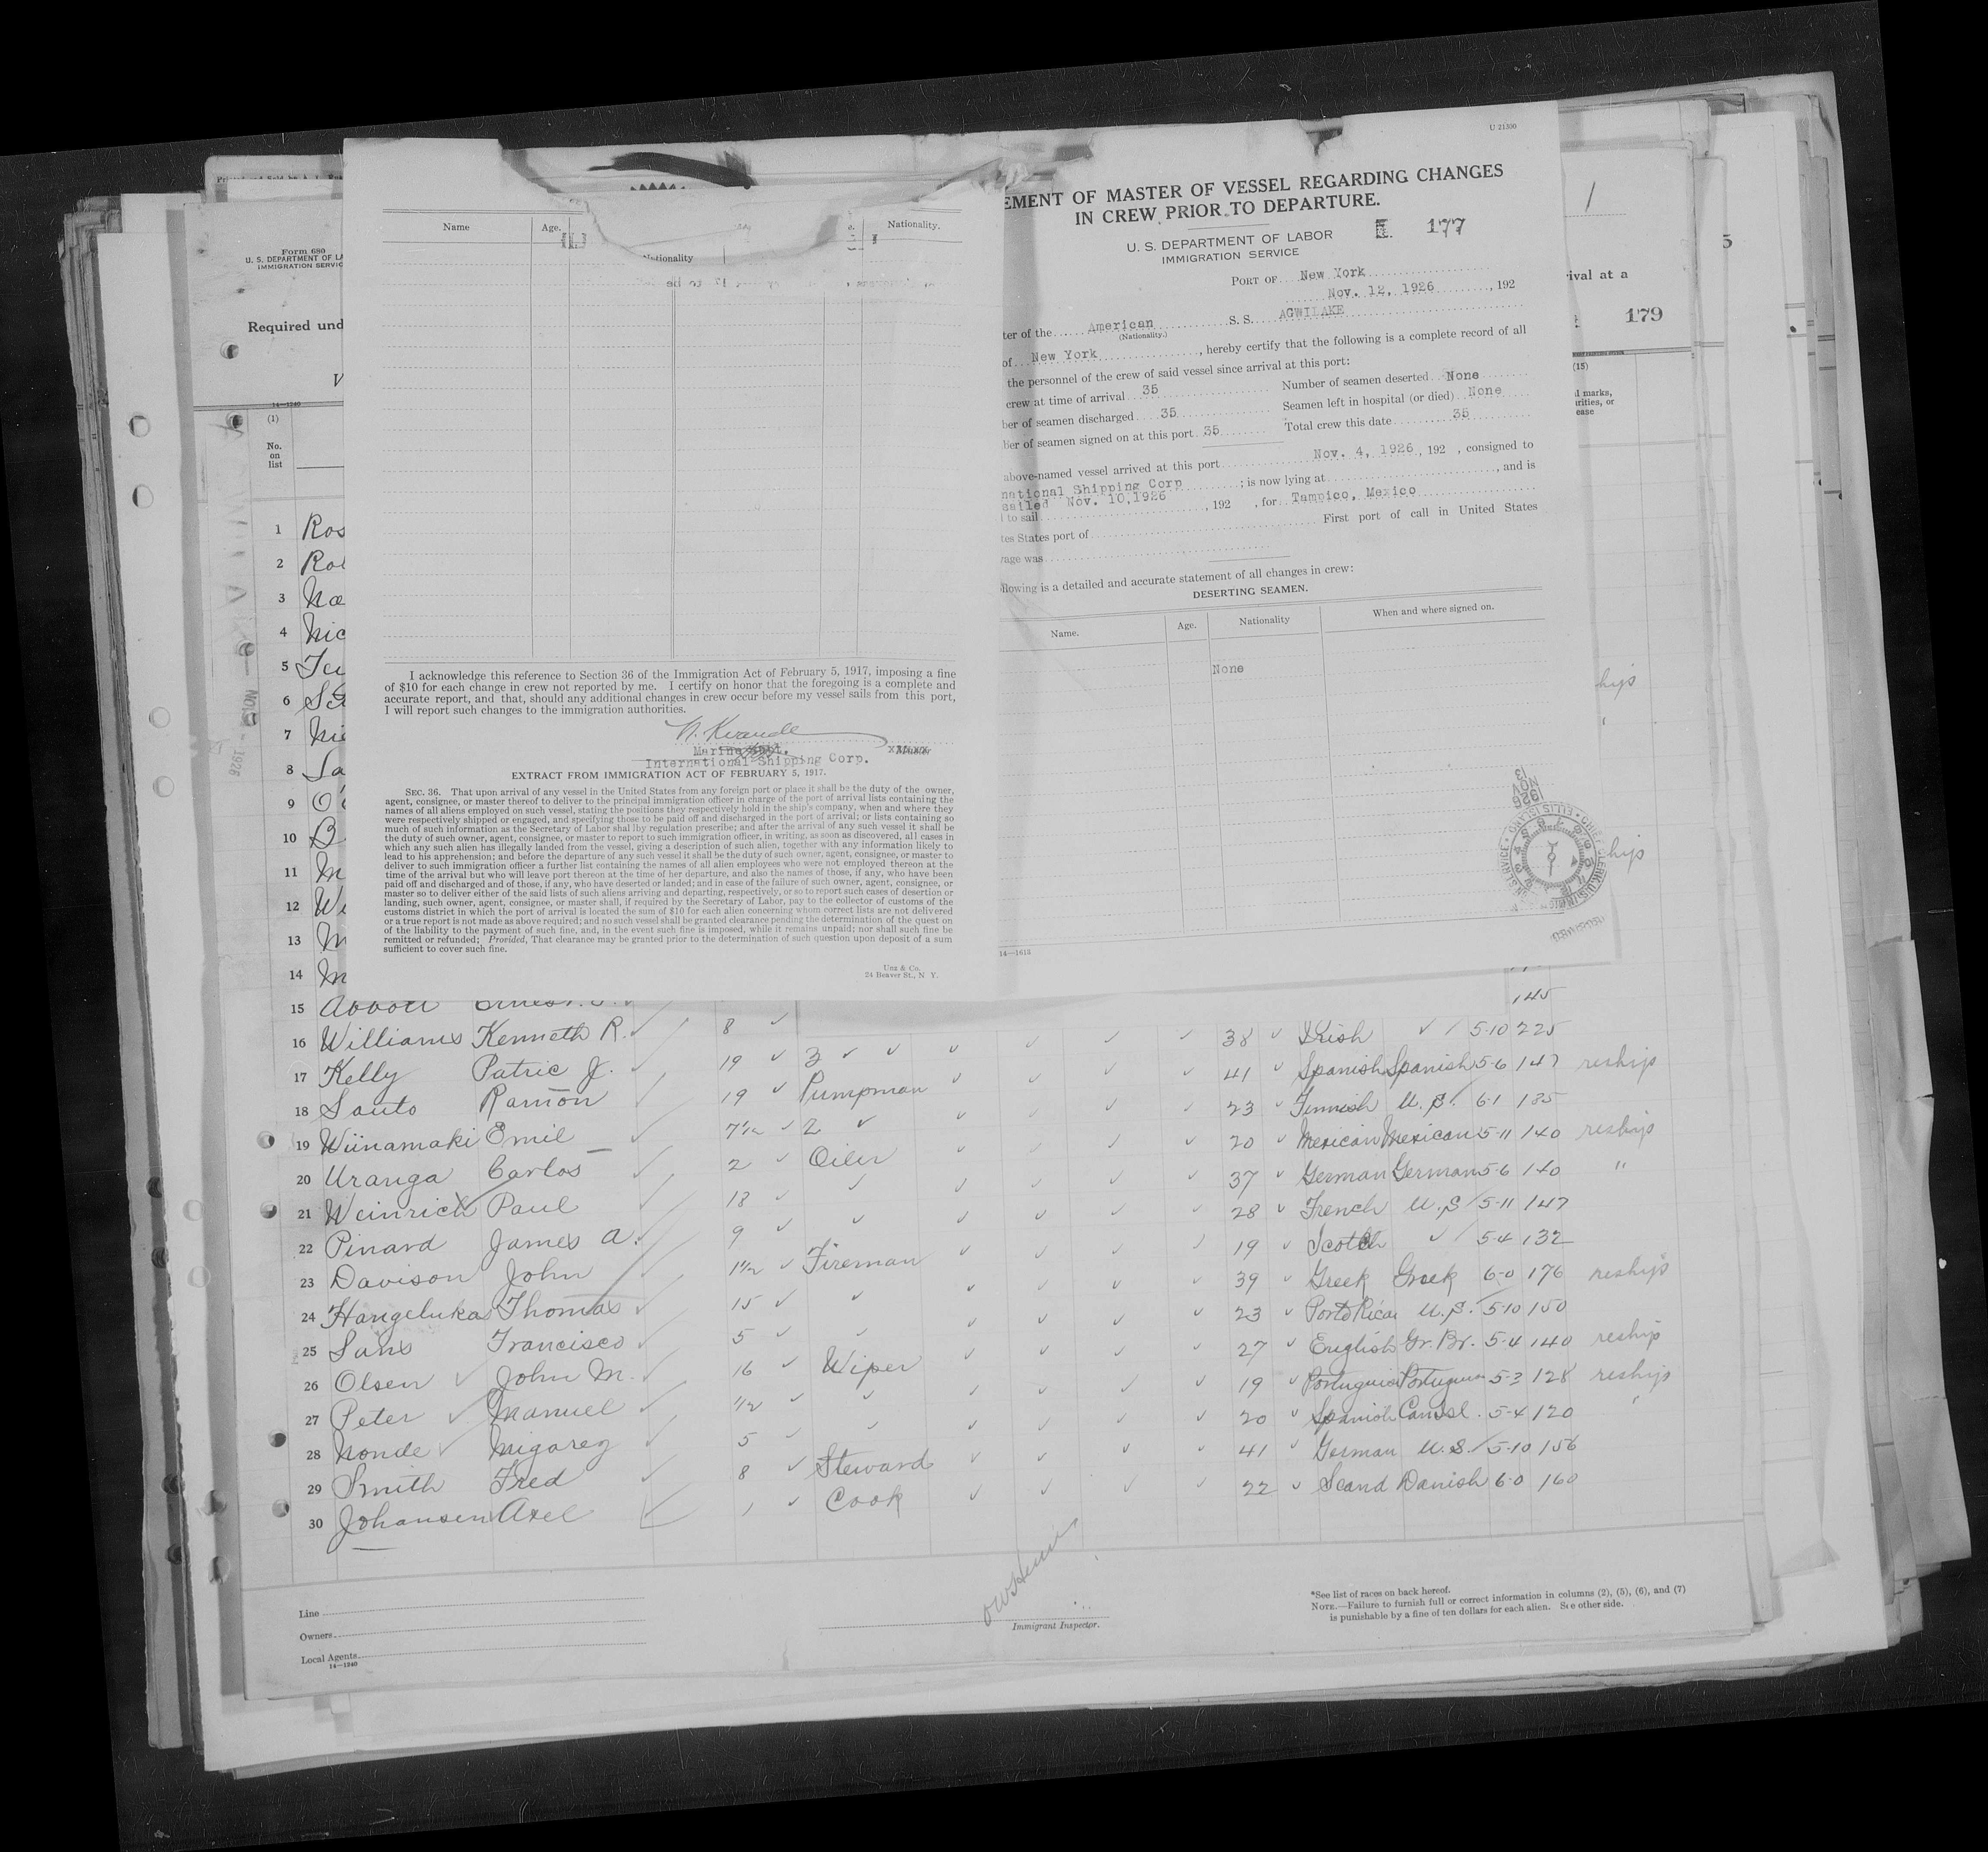 U 21300
EMENT OF MASTER OF VESSEL REGARDING CHANGES
IN CREW PRIOR TO DEPARTURE.
U. S. DEPARTMENT OF LABOR
IMMIGRATION SERVICE
177
PORT OF New York
Nov. 12, 1926, 192
ter of the American S. S. AGWILAKE
(Nationality.)
of New York, hereby certify that the following is a complete record of all
the personnel of the crew of said vessel since arrival at this port:
crew at time of arrival 35 Number of seamen deserted None
ber of seamen discharged 35 Seamen left in hospital (or died) None
ber of seamen signed on at this port 35 Total crew this date 35
above-named vessel arrived at this port Nov. 4, 1926, 192 , consigned to
national Shipping Corp ; is now lying at , and is
sailed Nov. 10,1926
to sail , 192 , for Tampico, Mexico
tes States port of First port of call in United States
yage was
llowing is a detailed and accurate statement of all changes in crew:
DESERTING SEAMEN.
Name. Age. Nationality When and where signed on.
None
14—1613
1926
NOV
3
Name Age. Nationality.
Nationality
I acknowledge this reference to Section 36 of the Immigration Act of February 5, 1917, imposing a fine
of $10 for each change in crew not reported by me. I certify on honor that the foregoing is a complete and
accurate report, and that, should any additional changes in crew occur before my vessel sails from this port,
I will report such changes to the immigration authorities.
Master
International Shipping Corp.
EXTRACT FROM IMMIGRATION ACT OF FEBRUARY 5, 1917.
SEC. 36. That upon arrival of any vessel in the United States from any foreign port or place it shall be the duty of the owner,
agent, consignee, or master thereof to deliver to the principal immigration officer in charge of the port of arrival lists containing the
names of all aliens employed on such vessel, stating the positions they respectively hold in the ship's company, when and where they
were respectively shipped or engaged, and specifying those to be paid off and discharged in the port of arrival; or lists containing so
much of such information as the Secretary of Labor shal lby regulation prescribe; and after the arrival of any such vessel it shall be
the duty of such owner, agent, consignee, or master to report to such immigration officer, in writing, as soon as discovered, all cases in
which any such alien has illegally landed from the vessel, giving a description of such alien, together with any information likely to
lead to his apprehension; and before the departure of any such vessel it shall be the duty of such owner, agent, consignee, or master to
deliver to such immigration officer a further list containing the names of all alien employees who were not employed thereon at the
time of the arrival but who will leave port thereon at the time of her departure, and also the names of those, if any, who have been
paid off and discharged and of those, if any, who have deserted or landed; and in case of the failure of such owner, agent, consignee, or
master so to deliver either of the said lists of such aliens arriving and departing, respectively, or so to report such cases of desertion or
landing, such owner, agent, consignee, or master shall, if required by the Secretary of Labor, pay to the collector of customs of the
customs district in which the port of arrival is located the sum of $10 for each alien concerning whom correct lists are not delivered
or a true report is not made as above required; and no such vessel shall be granted clearance pending the determination of the quest on
of the liability to the payment of such fine, and, in the event such fine is imposed, while it remains unpaid; nor shall such fine be
remitted or refunded; Provided, That clearance may be granted prior to the determination of such question upon deposit of a sum
sufficient to cover such fine.
Unz & Co.
24 Beaver St., N Y.
Form 680
U. S. DEPARTMENT OF LA
IMMIGRATION SERVIC
Required und
14—1240
(1)
No.
on
list
1
rival at a
179
5
(15)
l marks,
arities, or
ease
1 Ros
2 Rol
3 Na
4 Nic
5
6
7 Nie
8 La
9 O'
10 B
11 M
12 Wi
13 M
14 M
15 Abbott Ernest 145
16 Williams Kenneth R. 8 38 Irish 5-10 225
17 Kelly Patric J. 19 3 41 Spanish Spanish 5-6 147 reship
18 Santo Ramon 19 Pumpman 23 Finnish U.S. 6-1 185
19 Wiinamaki Emil 7½ 2 20 Mexican Mexican 5-11 140 reship
20 Uranga Carlos 2 Oiler 37 German German 5-6 140 "
21 Weinrich Paul 18 28 French U.S 5-11 147
22 Pinard James A. 9 19 Scotch 5-4 132
23 Davison John 1½ Fireman 39 Greek Greek 6-0 176 reship
24 Hangelukas Thomas 15 23 Porto Rican U.S. 5-10 150
25 Sans Francisco 5 27 English Gr. Br. 5-4 140 reship
26 Olsen John M. 16 Wiper 19 Portuguese Portuguese 5-3 128 reship
27 Peter Manuel ½ 20 Spanish 5-4 120
28 Nonde 5 41 German U.S. 5-10 156
29 Smith Fred 8 Steward 22 Scand Danish 6-0 160
30 Johansen Axel 1 Cook
Line
Owners
Local Agents
14—1240
Immigrant Inspector.
*See list of races on back hereof.
NOTE.—Failure to furnish full or correct information in columns (2), (5), (6), and (7)
is punishable by a fine of ten dollars for each alien. See other side.